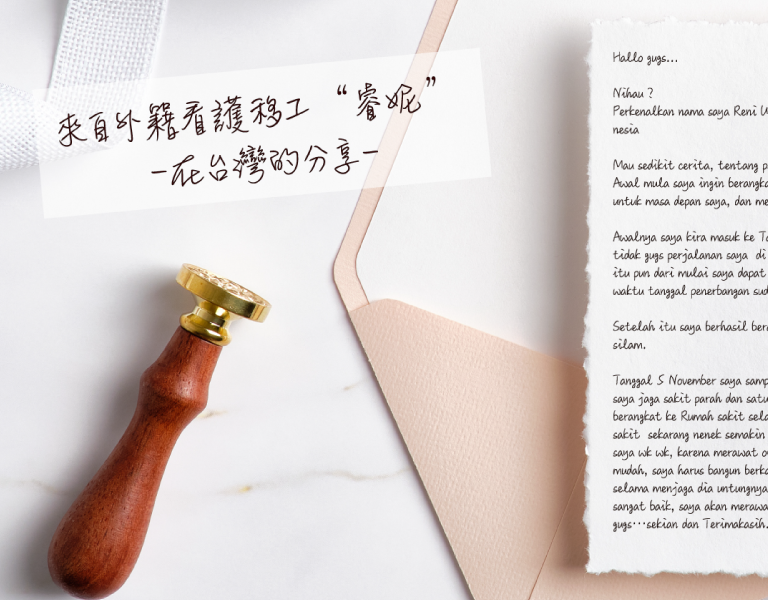 來自外籍看護移工 “睿妮”
–在台灣的分享–
Hallo gugs...
Nihau ?
Perkenalkan nama saya Reni
nesia
Mau sedikit cerita, tentang
Awal mula saya ingin berangka
untuk masa depan saya, dan
Awalnya saya kira masuk ke
tidak gugs perjalanan saya di
itu pun dari mulai saya dapat
waktu tanggal penerbangan
Setelah itu saya berhasil
silam.
Tanggal 5 November saya
saya jaga sakit parah dan
berangkat ke Rumah sakit
sakit sekarang nenek semakin
saya wk wk, karena merawat
mudah, saya harus bangun
selama menjaga dia untungnya
sangat baik, saya akan
gugs···sekian dan Terimakasih.